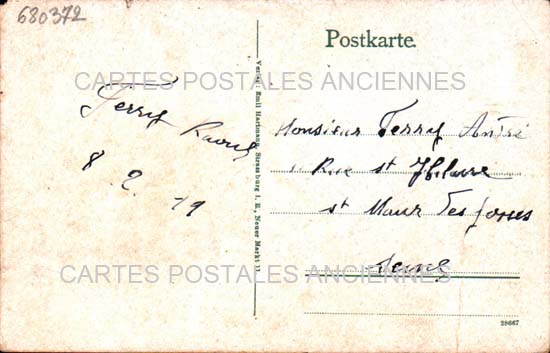 680372
Postkarte.
CARTES POSTALES ANCIENNES
Ferry Raoul
8 2 19
Verlag: Emil Hartmann, Strassburg i. E., Neuer Markt 11.
Monsieur Ferry André
Rue st Hilaire
st Maur des fosses
Seine
CARTES POSTALES ANCIENNES
28667